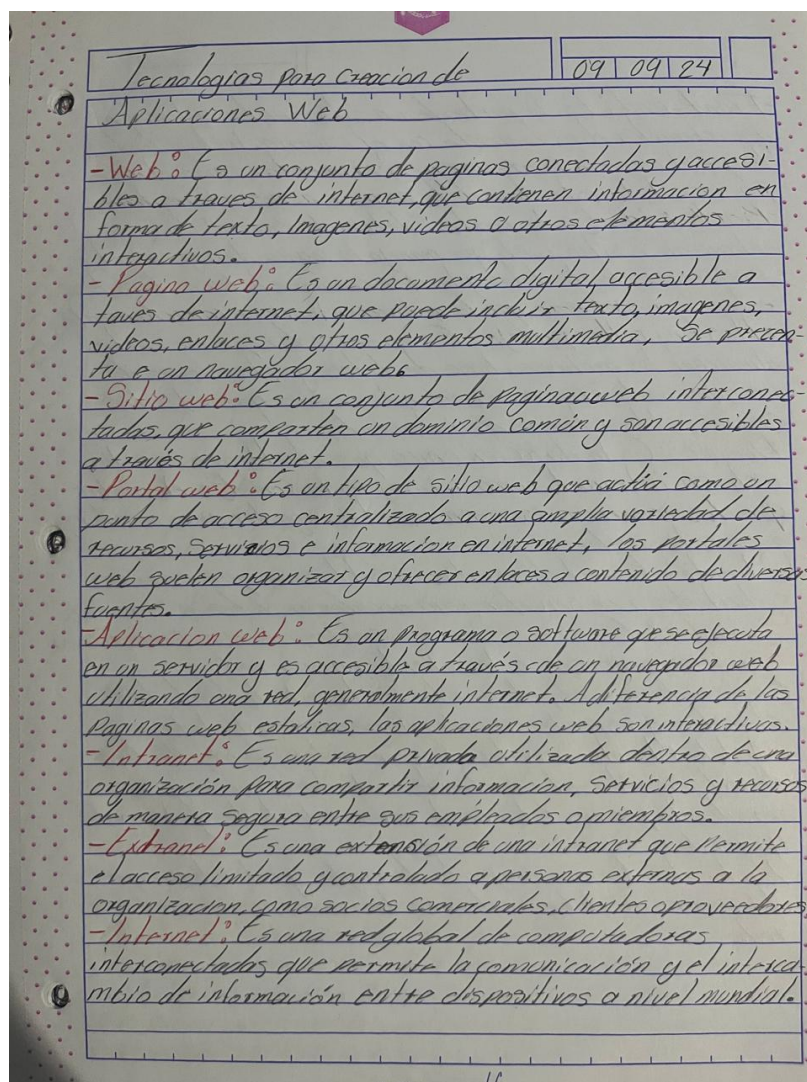 Tecnologias para Creacion de
09 09 24
Aplicaciones Web
- Web: Es un conjunto de paginas conectadas y accesi-
bles a traves de internet, que contienen informacion en
forma de texto, Imagenes, videos o otros elementos
interactivos.
- Pagina web: Es un documento digital accesible a
taves de internet, que puede incluir texto, imagenes,
videos, enlaces y otros elementos multimedia, Se precen-
ta e un navegador web.
- Sitio web: Es un conjunto de Paginas web interconec-
tadas, que comparten un dominio común y son accesibles
a través de internet.
- Portal web: Es un tipo de sitio web que actúa como un
punto de acceso centralizado a una amplia variedad de
recursos, Servicios e informacion en internet, los portales
web suelen organizar y ofrecer enlaces a contenido de diversas
fuentes.
- Aplicacion web: Es un programa o software que se ejecuta
en un servidor y es accesible a través de un navegador web
utilizando una red, generalmente internet. A diferencia de las
Paginas web estaticas, las aplicaciones web son interactivas.
- Intranet: Es una red privada utilizada dentro de una
organización para compartir informacion, Servicios y recursos
de manera segura entre sus empleados o miembros.
- Extranet: Es una extensión de una intranet que Permite
el acceso limitado y controlado a personas externas a la
organizacion, como socios comerciales, clientes o proveedores
- Internet: Es una red global de computadoras
interconectadas que permite la comunicación y el interca-
mbio de información entre dispositivos a nivel mundial.